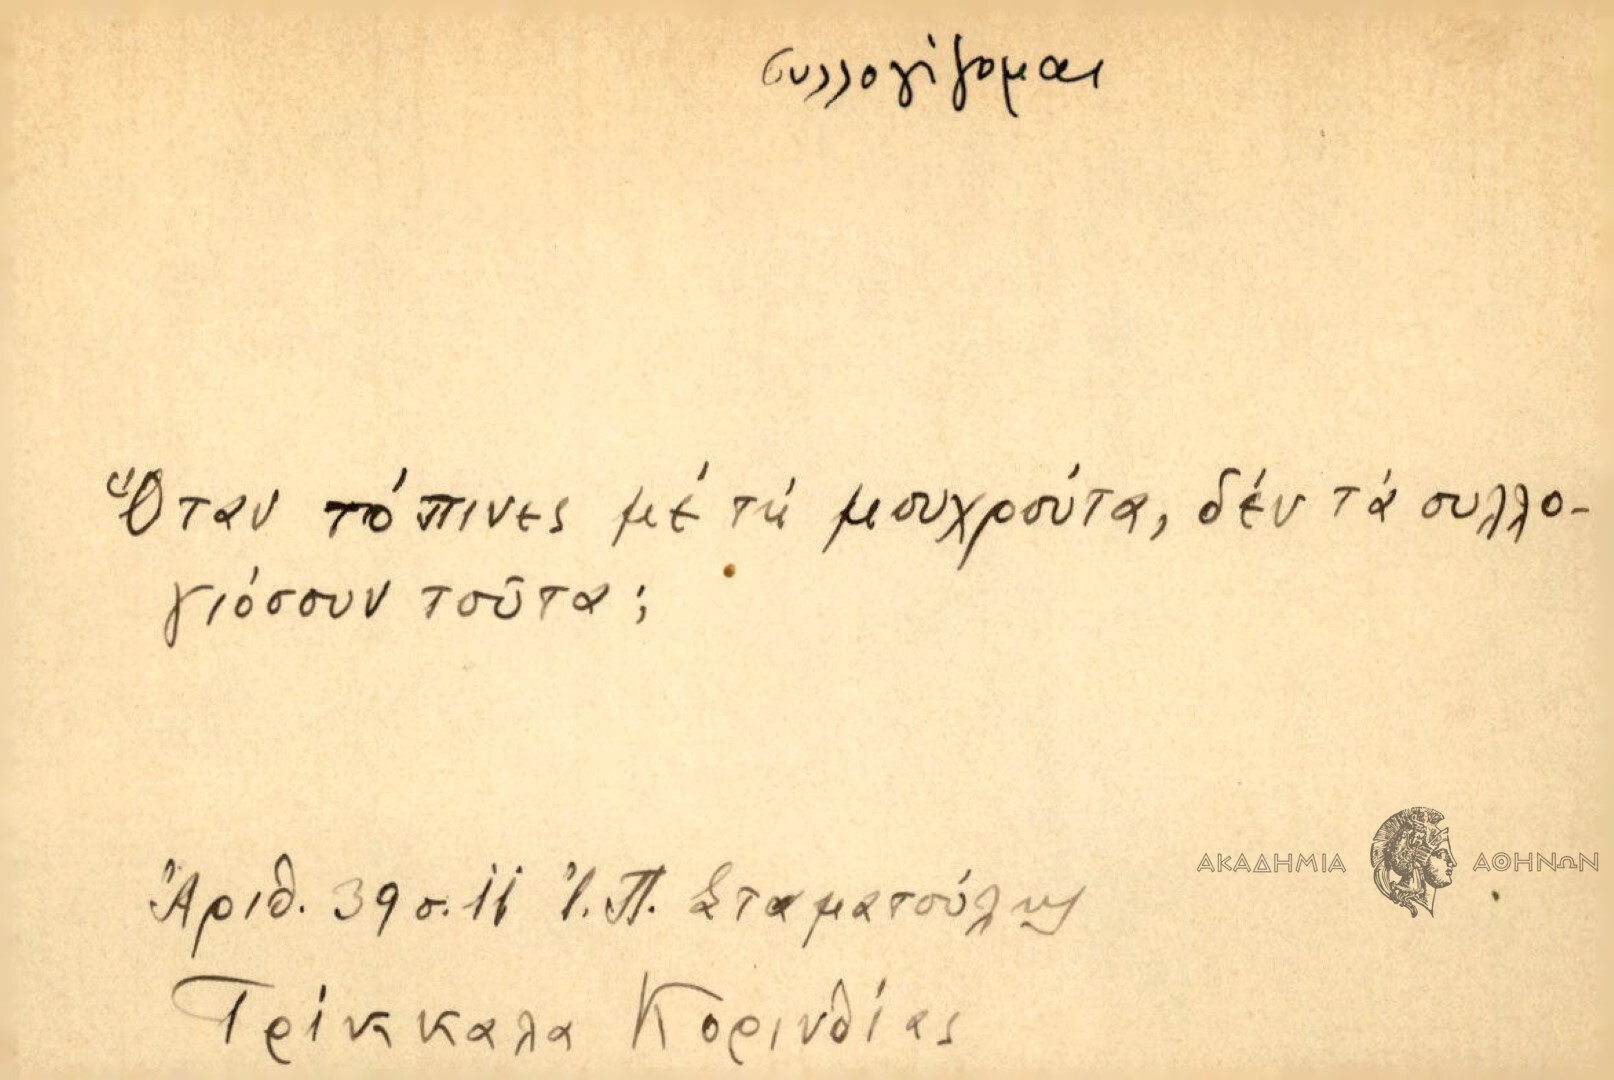 συλλογίζομαι
Ὅταν τό πινες μέ τή μουχρούτα, δέν τά συλλο-
γιόσουν τοῦτα;
ΑΚΑΔΗΜΙΑ ΑΘΗΝΩΝ
Ἀριθ. 39 σ. 11 Ἰ. Π. Σταματούλης
Τρίκκαλα Κορινθίας